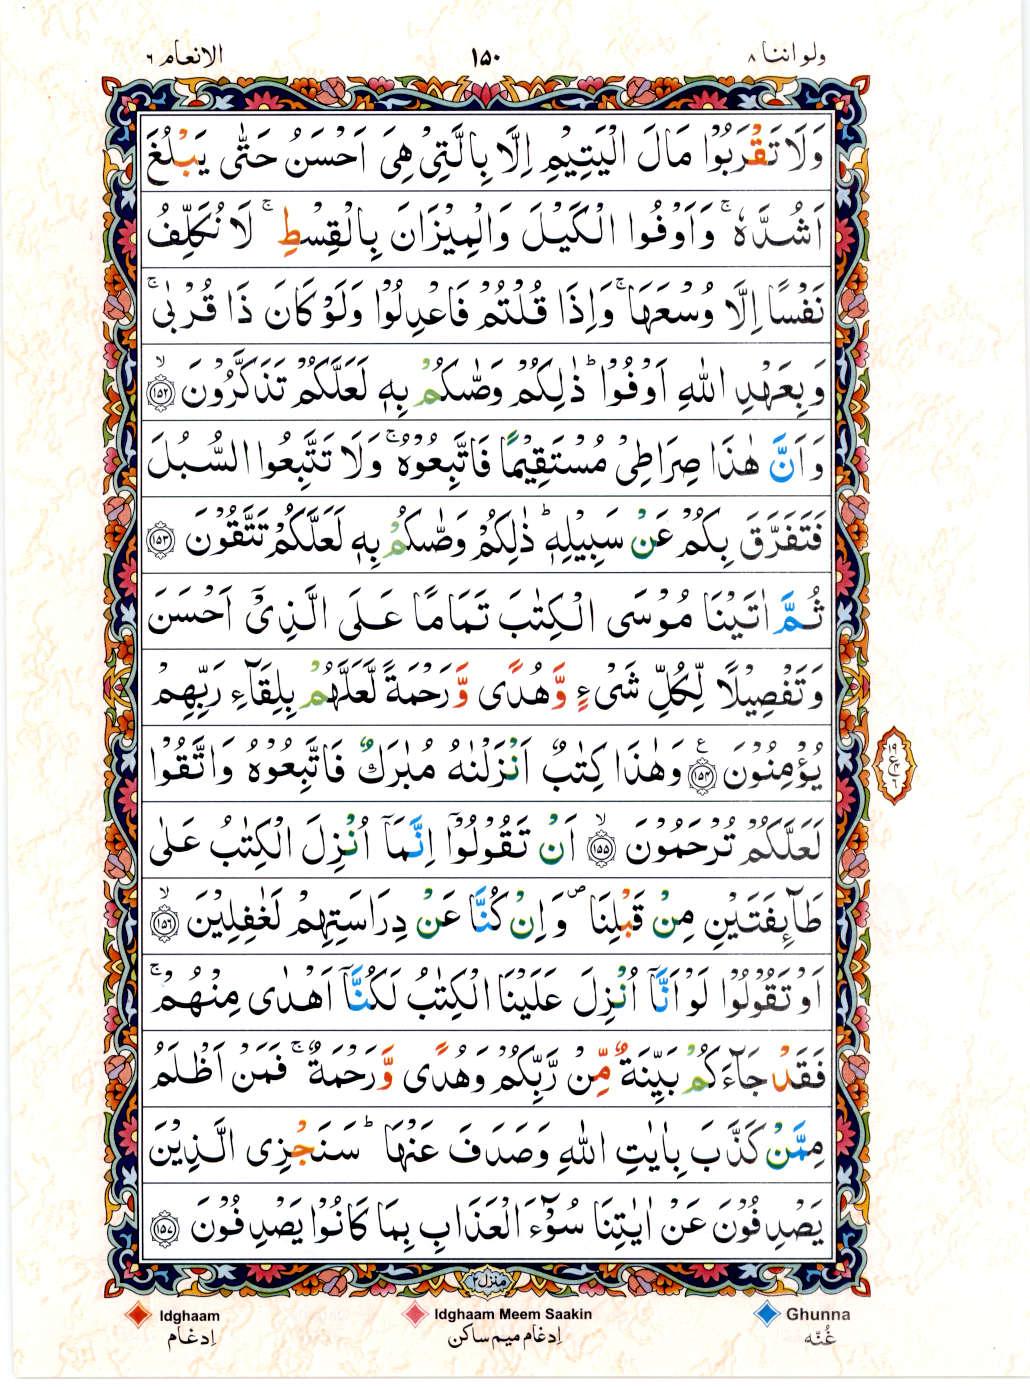 الانعام ٦
١٥٠
ولواننا ٨
وَلَا تَقْرَبُوْا مَالَ الْيَتِيْمِ اِلَّا بِالَّتِيْ هِىَ اَحْسَنُ حَتّٰى يَبْلُغَ
اَشُدَّهٗ ۚ وَاَوْفُوا الْكَيْلَ وَالْمِيْزَانَ بِالْقِسْطِ ۚ لَا نُكَلِّفُ
نَفْسًا اِلَّا وُسْعَهَا ۚ وَاِذَا قُلْتُمْ فَاعْدِلُوْا وَلَوْ كَانَ ذَا قُرْبٰى ۚ
وَبِعَهْدِ اللّٰهِ اَوْفُوْا ؕ ذٰلِكُمْ وَصّٰىكُمْ بِهٖ لَعَلَّكُمْ تَذَكَّرُوْنَ ۙ ﴿١٥٢﴾
وَاَنَّ هٰذَا صِرَاطِىْ مُسْتَقِيْمًا فَاتَّبِعُوْهُ ۚ وَلَا تَتَّبِعُوا السُّبُلَ
فَتَفَرَّقَ بِكُمْ عَنْ سَبِيْلِهٖ ؕ ذٰلِكُمْ وَصّٰىكُمْ بِهٖ لَعَلَّكُمْ تَتَّقُوْنَ ﴿١٥٣﴾
ثُمَّ اٰتَيْنَا مُوْسَى الْكِتٰبَ تَمَامًا عَلَى الَّذِىْٓ اَحْسَنَ
وَتَفْصِيْلًا لِّكُلِّ شَىْءٍ وَّهُدًى وَّرَحْمَةً لَّعَلَّهُمْ بِلِقَآءِ رَبِّهِمْ
يُؤْمِنُوْنَ ﴿١٥٤﴾ ع وَهٰذَا كِتٰبٌ اَنْزَلْنٰهُ مُبٰرَكٌ فَاتَّبِعُوْهُ وَاتَّقُوْا
لَعَلَّكُمْ تُرْحَمُوْنَ ۙ ﴿١٥٥﴾ اَنْ تَقُوْلُوْٓا اِنَّمَآ اُنْزِلَ الْكِتٰبُ عَلٰى
طَآئِفَتَيْنِ مِنْ قَبْلِنَا ۖ وَاِنْ كُنَّا عَنْ دِرَاسَتِهِمْ لَغٰفِلِيْنَ ۙ ﴿١٥٦﴾
اَوْ تَقُوْلُوْا لَوْ اَنَّآ اُنْزِلَ عَلَيْنَا الْكِتٰبُ لَكُنَّآ اَهْدٰى مِنْهُمْ ۚ
فَقَدْ جَآءَكُمْ بَيِّنَةٌ مِّنْ رَّبِّكُمْ وَهُدًى وَّرَحْمَةٌ ۚ فَمَنْ اَظْلَمُ
مِمَّنْ كَذَّبَ بِاٰيٰتِ اللّٰهِ وَصَدَفَ عَنْهَا ؕ سَنَجْزِى الَّذِيْنَ
يَصْدِفُوْنَ عَنْ اٰيٰتِنَا سُوْٓءَ الْعَذَابِ بِمَا كَانُوْا يَصْدِفُوْنَ ﴿١٥٧﴾
منزل ٢
Idghaam
Idghaam Meem Saakin
Ghunna
اِدغام
اِدغام میم ساکن
غُنّه